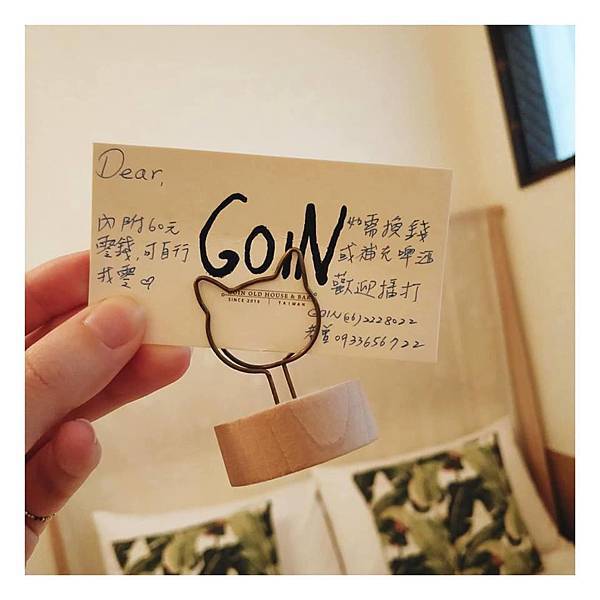 Dear,
內附60元
零錢,可自行
找零♡
GOIN
GOIN OLD HOUSE & BAR
SINCE 2016 | TAIWAN
如需換錢
或補充啤酒
歡迎播打
GOIN(06)2228022
0933656722